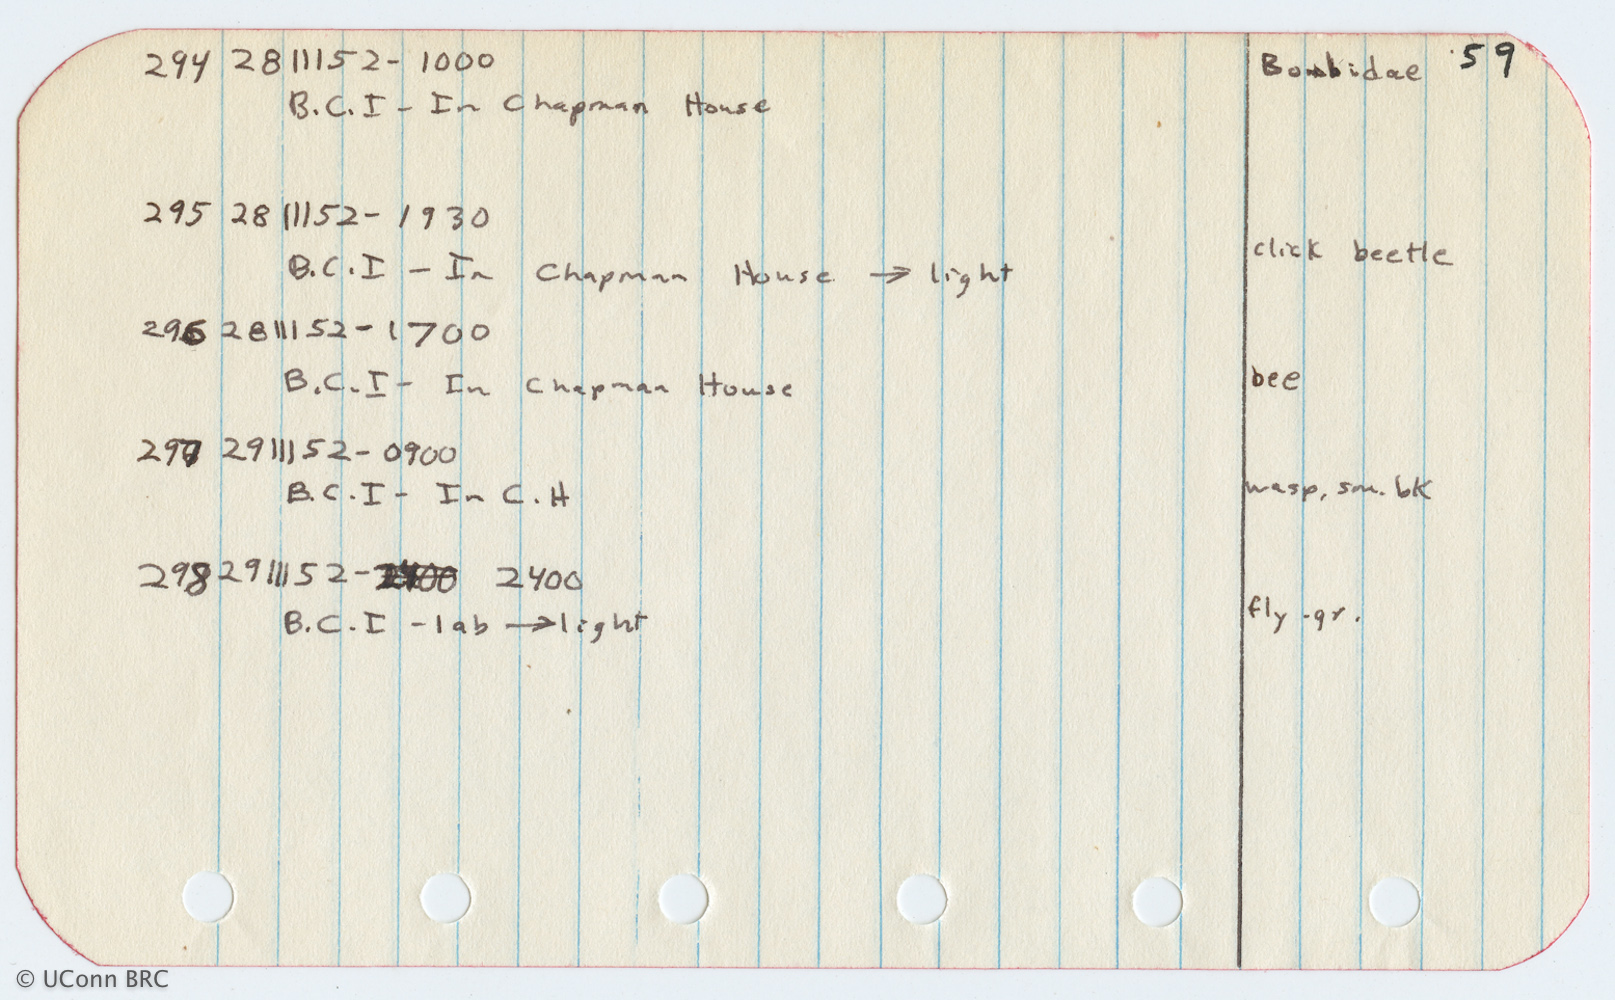 59
294 28 III 52 - 1000 Bombidae
B.C.I - In Chapman House
295 28 III 52 - 1930
B.C.I - In Chapman House → light click beetle
296 28 III 52 - 1700
B.C.I - In Chapman House bee
297 29 III 52 - 0900
B.C.I - In C.H wasp, sm. bk
298 29 III 52 - 2400
B.C.I - lab → light fly - gr.
© UConn BRC